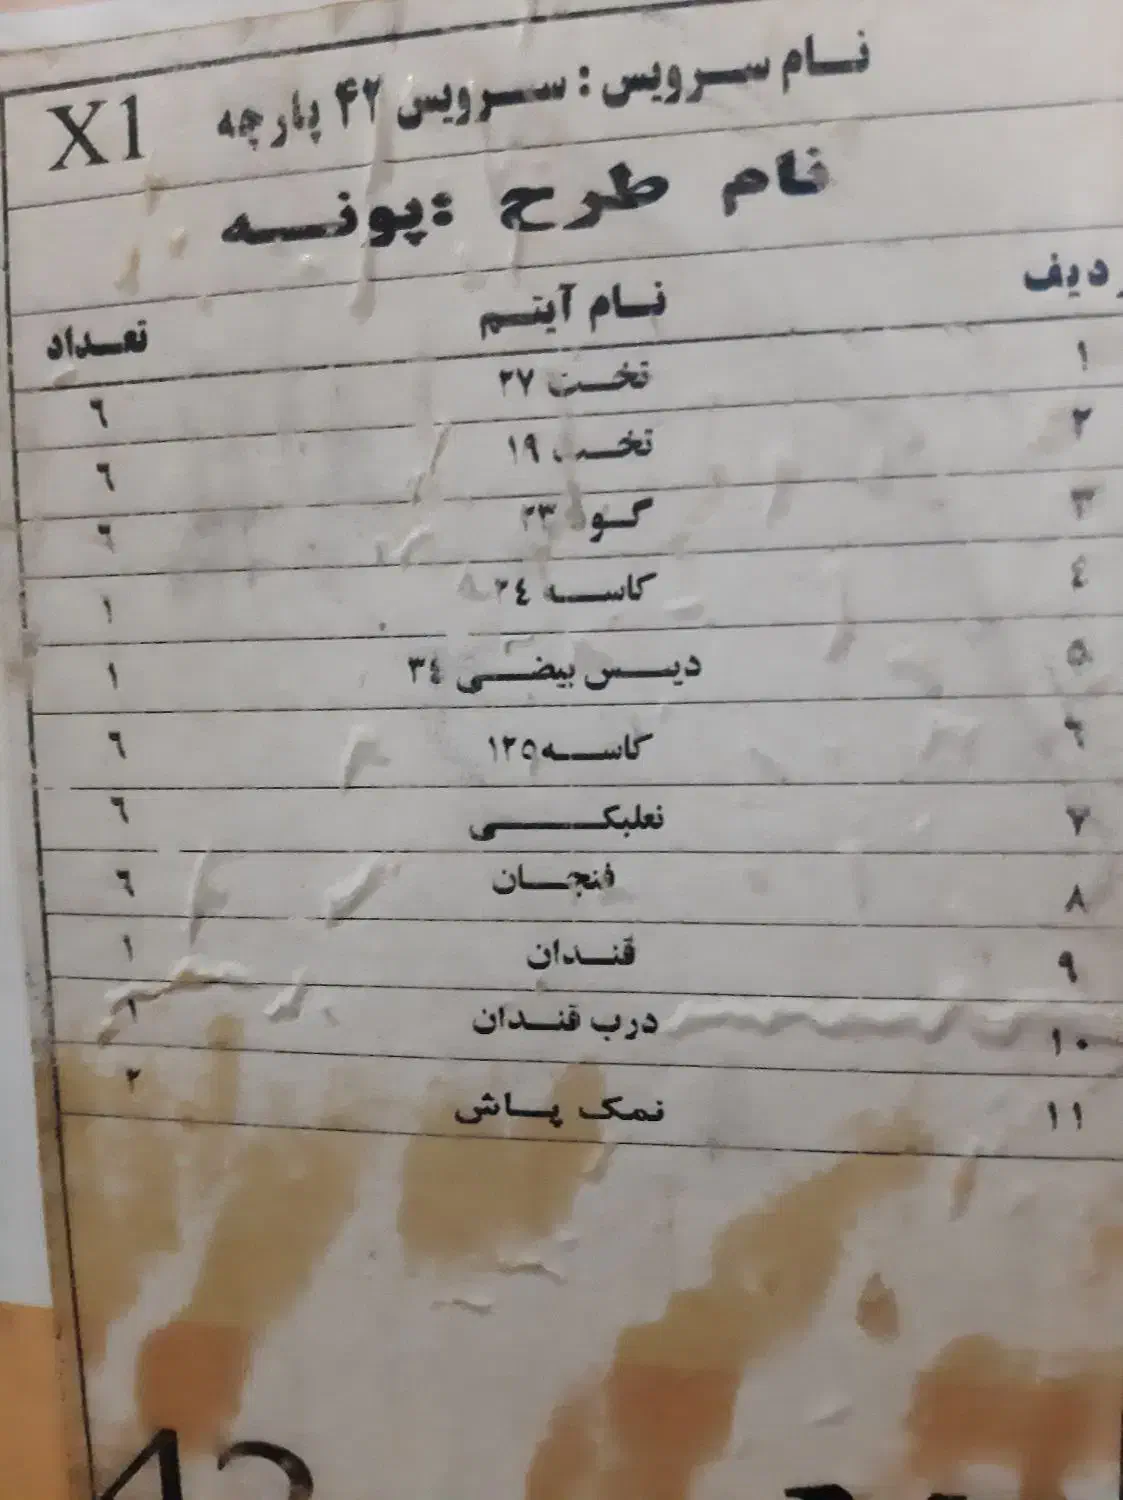 نام سرویس : سرویس ۴۲ پارچه X1
نام طرح :پونه
ردیف نام آیتم تعداد
۱ تخت ۲۷ ٦
۲ تخت ۱۹ ٦
۳ گود ۲۳ ٦
٤ کاسه ۲٤ ۱
۵ دیس بیضی ۳٤ ۱
٦ کاسه ۱۲۵ ٦
۷ نعلبکی ٦
۸ فنجان ٦
۹ قندان ۱
۱۰ درب قندان ۱
۱۱ نمک پاش ۲
42